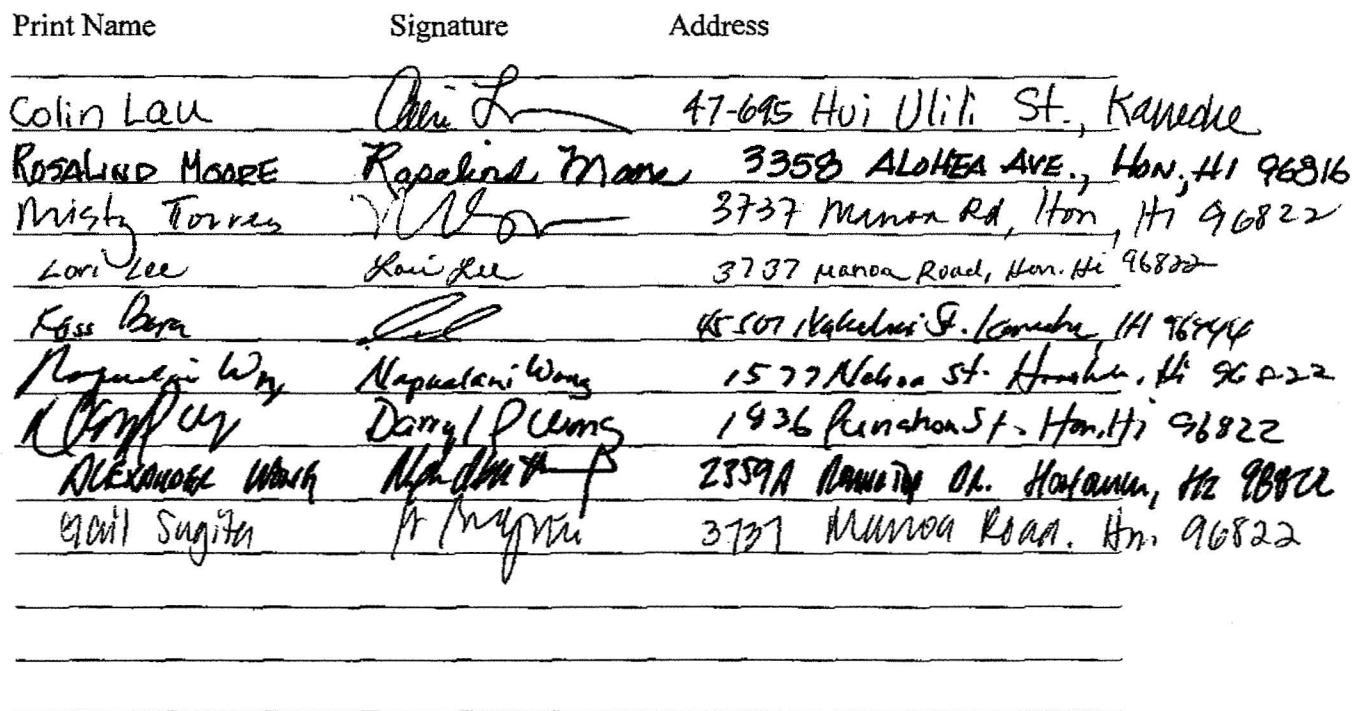 Print Name Signature Address
Colin Lau 47-695 Hui Ulili St., Kaneohe
ROSALIND MOORE Rosalind Moore 3358 ALOHEA AVE., HON., HI 96816
Misty Torres 3737 Manoa Rd, Hon, Hi 96822
Lori Lee Lori Lee 3737 Manoa Road, Hon. Hi 96822
Kass St. Kaneohe, HI 96744
Napualani Wong Napualani Wong 1577 St. Honolulu, Hi 96822
Darryl P Wong 1936 Punahou St. Hon, Hi 96822
ALEXANDER WONG 2359A DR. HONOLULU, HI 96822
Gail Sugita 3737 Manoa Road. Hn. 96822